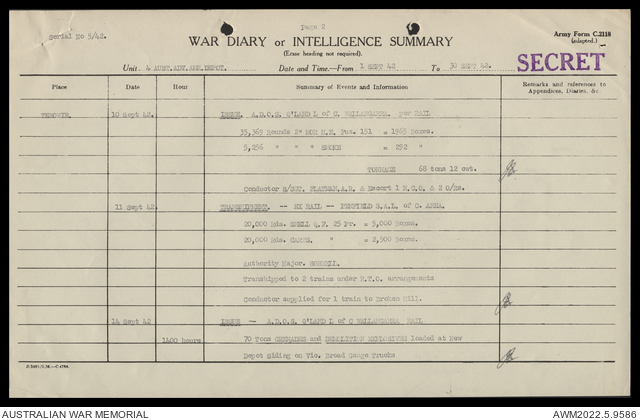 Serial No 5/42.
Page 2
WAR DIARY or INTELLIGENCE SUMMARY
(Erase heading not required).
Army Form C.2118
(adapted.)
SECRET
Unit 4 AUST.ADV.AMN.DEPOT. Date and Time.—From 1 SEPT 42 To 30 SEPT 42.
Place Date Hour Summary of Events and Information Remarks and references to Appendices, Diaries, &c
10 Sept 42. ISSUE. A.D.O.S. Q'LAND L of C. WALLANGARRA per RAIL
35,369 Rounds 2" MOR H.E. Fuz. 151 = 1965 Boxes.
5,256 " " " SMOKE = 292 "
TONNAGE 68 tons 12 cwt.
Conductor S/SGT. A.R. & Escort 1 N.C.O. & 2 O/Rs.
11 Sept 42. TRANSHIPMENT. -- EX RAIL -- PENFIELD S.A.L. of C. AREA.
20,000 Rds. SHELL Q.F. 25 pr. = 5,000 Boxes.
20,000 Rds. CARTS. " = 2,500 Boxes.
Authority Major.
Transhipped to 2 trains under R.T.O. arrangements
Conductor supplied for 1 train to Broken Hill.
14 Sept 42 ISSUE -- A.D.O.S. Q'LAND L of C WALLANGARRA RAIL
1400 hours 70 Tons GRENADES and DEMOLITION EXPLOSIVES loaded at New
Depot siding on Vic. Broad Gauge Trucks
AUSTRALIAN WAR MEMORIAL
AWM2022.5.9586